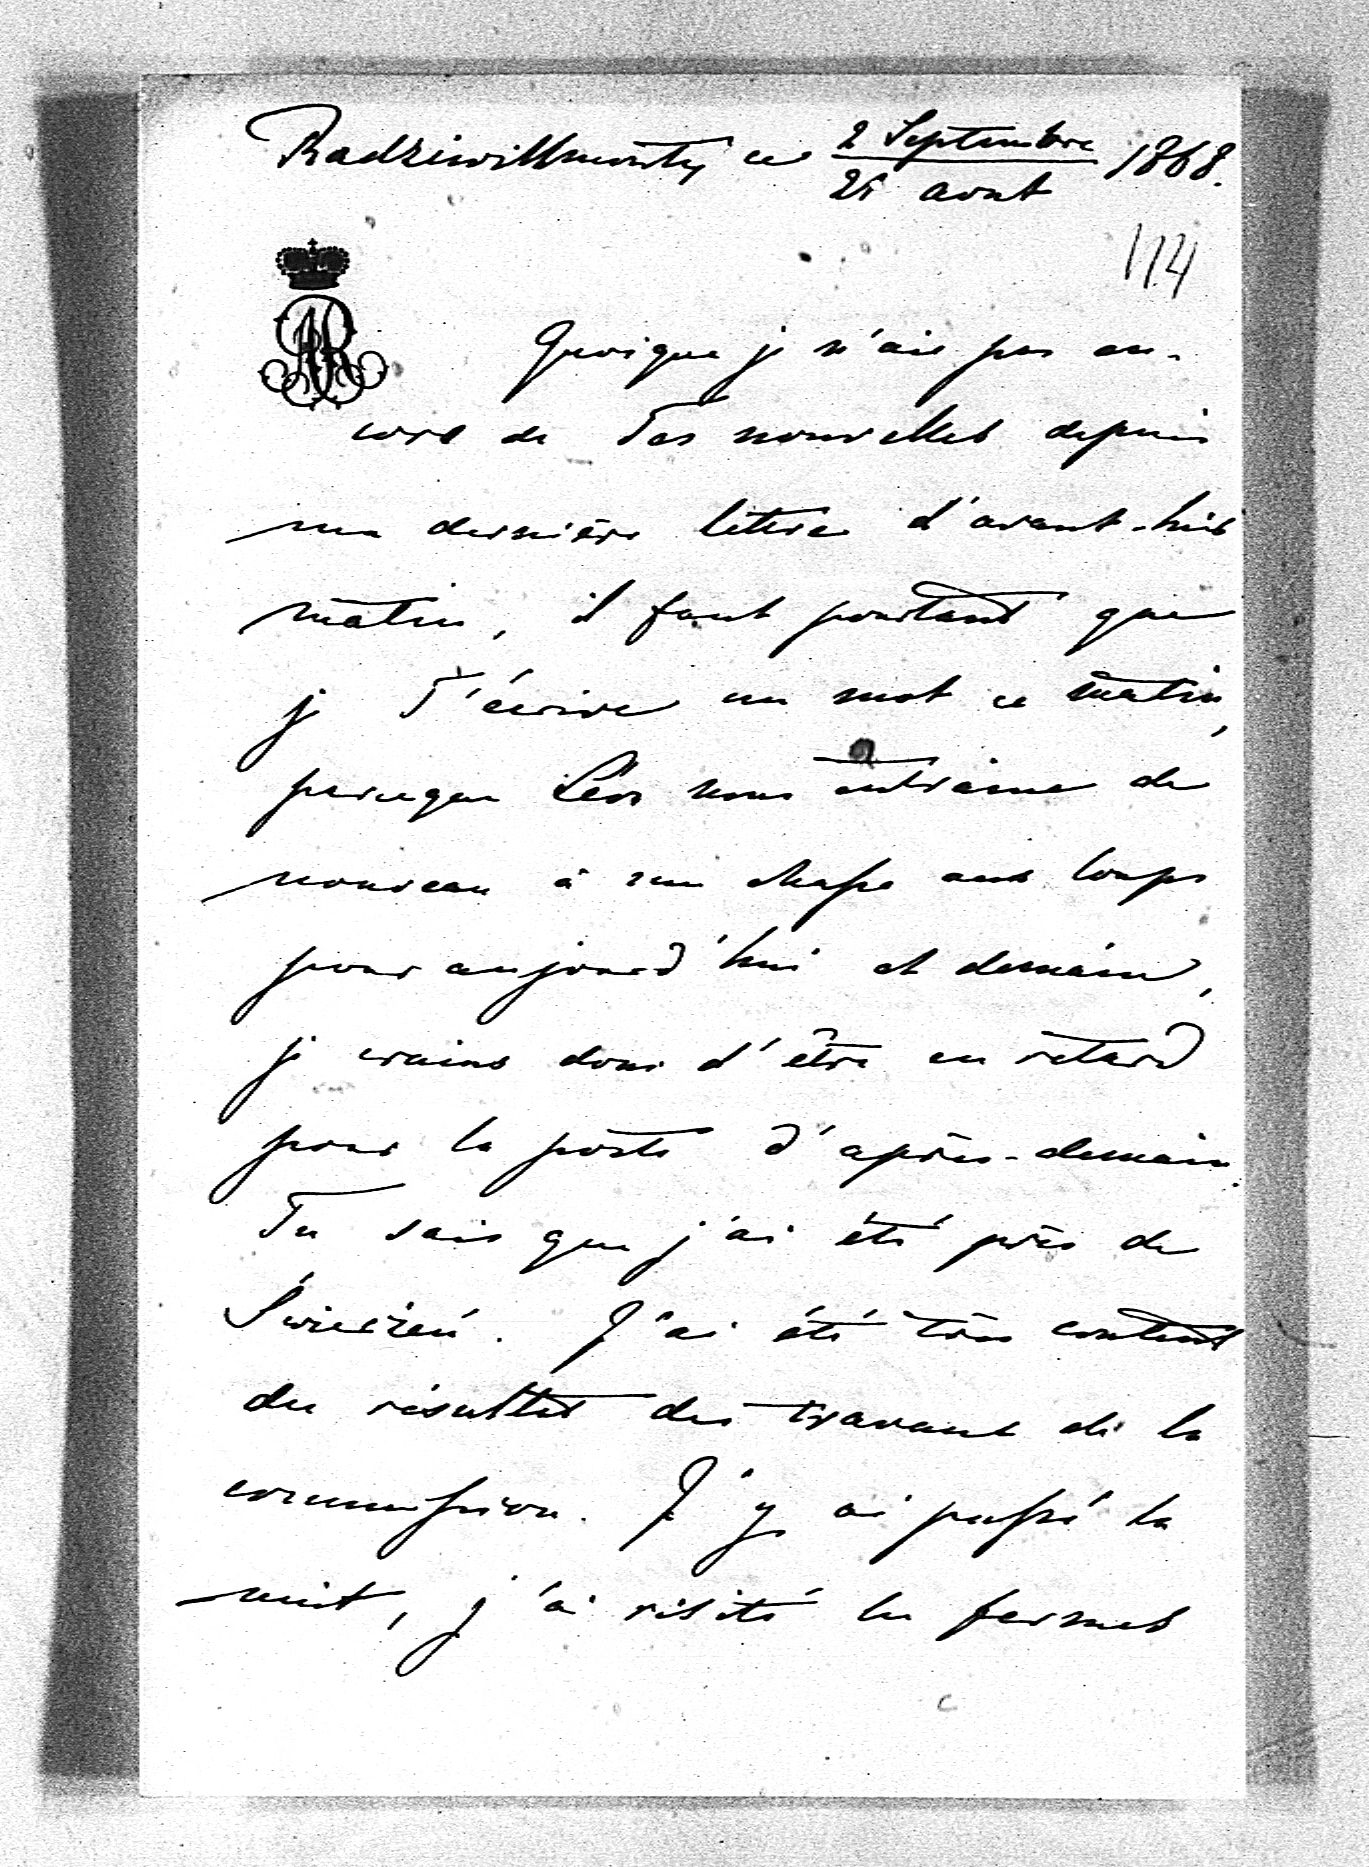 Radziwillmonty ce 2 Septembre 1868.
21 aout
114
AR
Quoique je n'aie pas en-
core de Tes nouvelles depuis
ma dernière lettre d'avant-hier
matin, il faut pourtant que
je T'écrive un mot ce matin,
parceque Léon nous entraine de
nouveau à une chasse aux loups
pour aujourd'hui et demain,
je crains donc d'être en retard
pour la poste d'après-demain.
Tu sais que j'ai été près de
Świerżeń. J'ai été très content
du résultat des travaux de la
commission. J'y ai passé la
nuit, j'ai visité les fermes